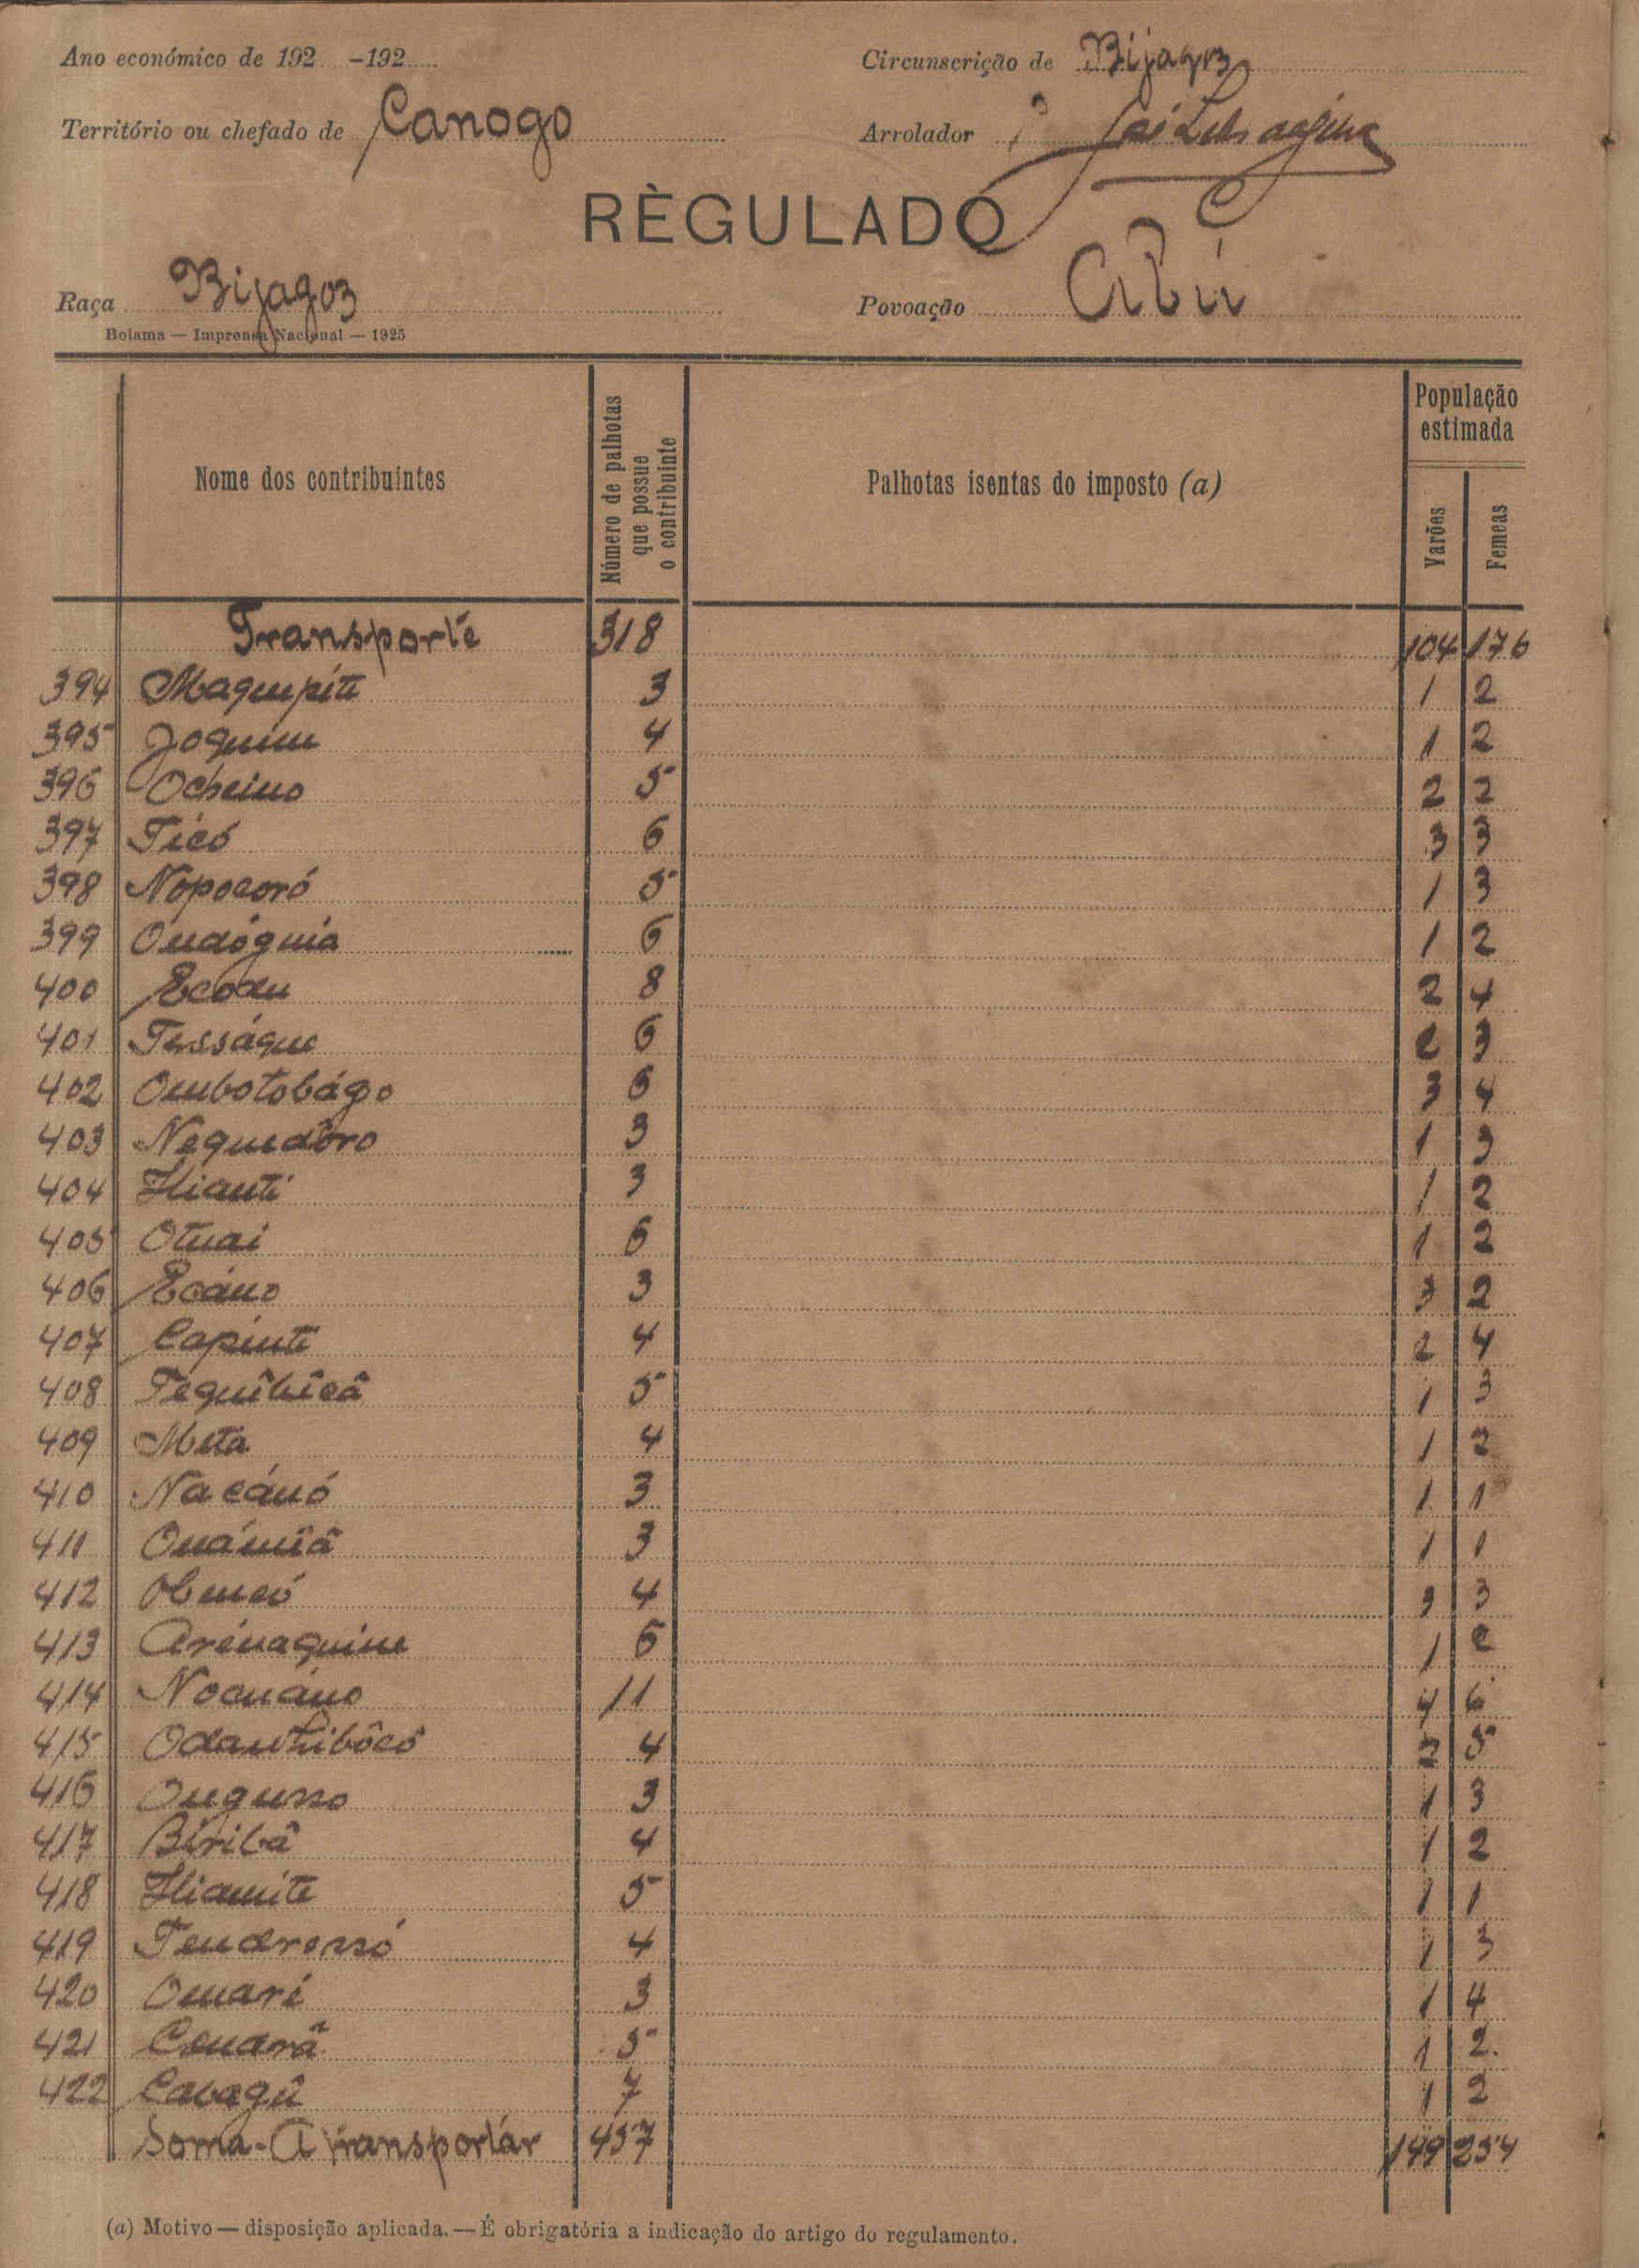 Ano económico de 192 -192 Circunscrição de Bijagoz
Território ou chefado de Canogo Arrolador José
RÈGULADO
Raça Bijagoz Povoação
Bolama — Imprensa Nacional — 1925
Nome dos contribuintes Número de palhotas que possue o contribuinte Palhotas isentas do imposto (a) População estimada Varões Femeas
Transporte 318 104 176
394 Maquipite 3 1 2
395 Joquim 4 1 2
396 Ocheino 5 2 2
397 Ticó 6 3 3
398 Nopocoró 5 1 3
399 Ondóguia 6 1 2
400 Ecodu 8 2 4
401 Tessáque 6 2 3
402 Ombotobágo 6 3 4
403 Nequedôro 3 1 3
404 Hianti 3 1 2
405 Otuai 6 1 2
406 Ecáno 3 3 2
407 Capinte 4 2 4
408 Tequîbicâ 5 1 3
409 Meta 4 1 2
410 Nacánó 3 1 1
411 3 1 1
412 4 3 3
413 Arénaquine 6 1 2
414 Nocuáno 11 4 6
415 4 2 5
416 Ongusso 3 1 3
417 Biribâ 4 1 2
418 Hiamite 5 1 1
419 Tendrossó 4 1 3
420 Omari 3 1 4
421 5 1 2
422 Cabagû 7 1 2
Soma-A transportár 457 149 254
(a) Motivo — disposição aplicada. — É obrigatória a indicação do artigo do regulamento.